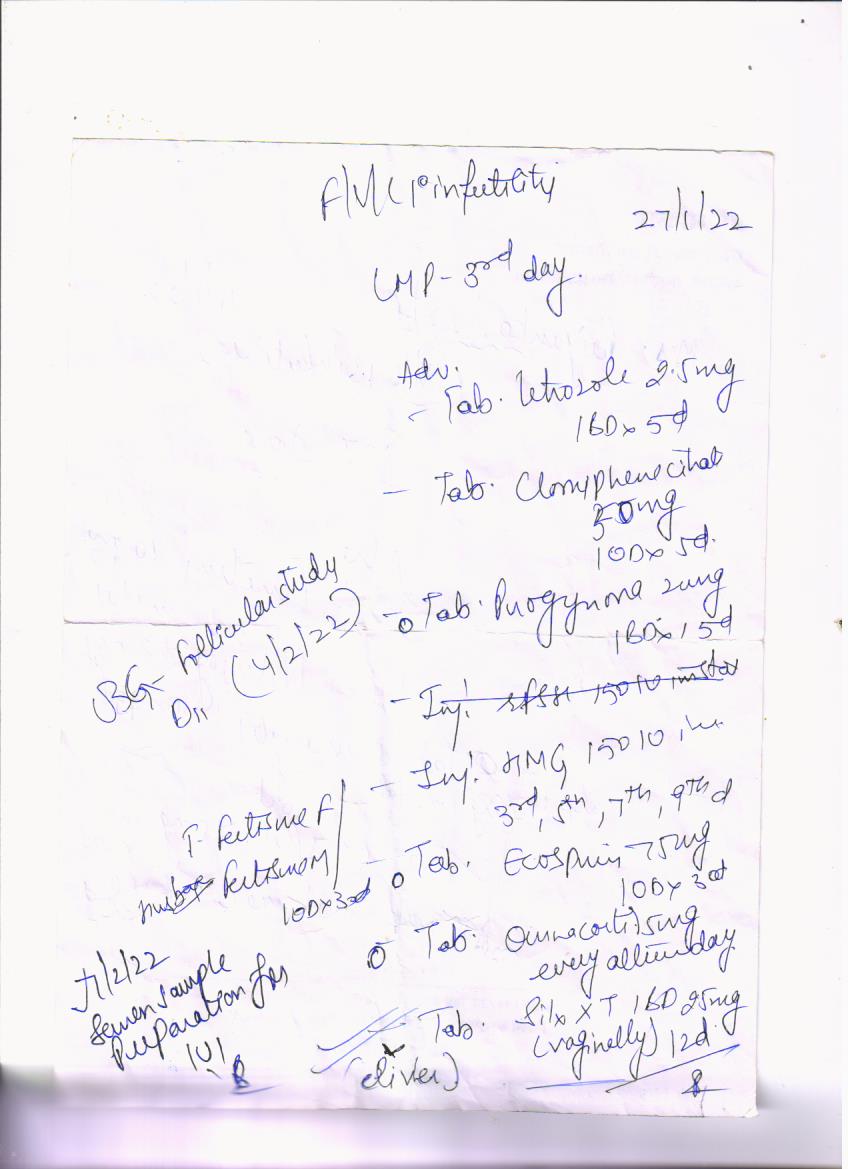 F/V/C 1° infertility
27/1/22
LMP - 3rd day.
Adv.
- Tab. Letrozole 2.5mg
1BD x 5d
- Tab. Clomiphene citrat
50mg
1OD x 5d.
- Tab. Progynova 2mg
1BD x 15d
- Inj. 150 IU
- Inj. HMG 150 IU im
3rd, 5th, 7th, 9th d
- Tab. Ecosprin 75mg
1OD x 30d
Tab. Omnacortil 5mg
every alternday
Tab. 1BD 25mg
(vaginelly) 12d
USG - follicular study
D11 (4/2/22)
T. Fertisure F
Fertisure M
1OD x 30d
7/2/22
Semen sample
Preparation for
IUI